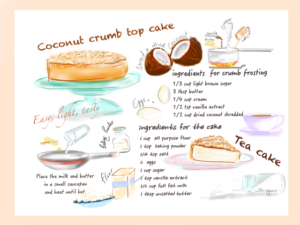 Coconut crumb top cake
ingredients for crumb frosting
1/3 cup light brown sugar
3 tbsp butter
1/4 cup cream
1/2 tsp vanilla extract
1/2 cup dried coconut shredded
Easy, light, taste
Eggs
ingredients for the cake
1 cup all purpose flour
1 tsp baking powder
1/4 tsp salt
2 eggs
1 cup sugar
1 tsp vanilla extract
1/2 cup full fat milk
1 tbsp unsalted butter
Tea cake
Baking Powder
Flour
Place the milk and butter
in a small saucepan
and heat until hot